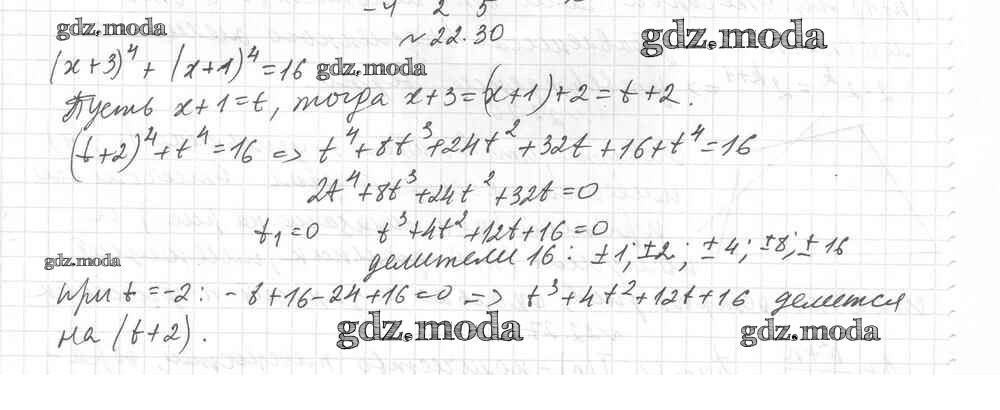 -4 2 5
gdz.moda
№ 22.30
gdz.moda
(x+3)⁴ + (x+1)⁴ = 16
gdz.moda
Пусть x+1=t, тогда x+3=(x+1)+2=t+2.
(t+2)⁴+t⁴=16 => t⁴+8t³+24t²+32t+16+t⁴=16
2t⁴+8t³+24t²+32t=0
t₁=0 t³+4t²+12t+16=0
gdz.moda
делители 16: ±1; ±2; ±4; ±8; ±16
при t=-2: -8+16-24+16=0 => t³+4t²+12t+16 делится
на (t+2).
gdz.moda
gdz.moda